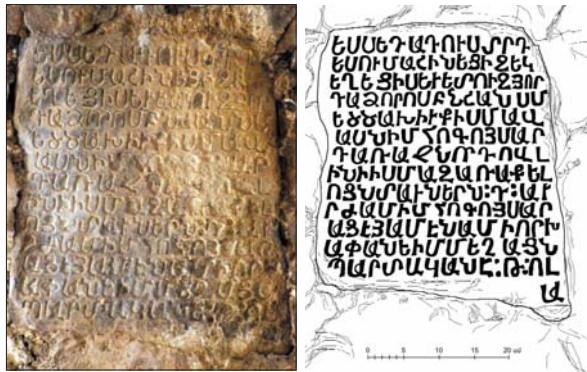 ԵՍՍԵԴԱԴՈՒՍՄՐԴ
ԵՍՈՒՄԱՇԻՆԵՑԻԶԵԿ
ԵՂԵՑԻՍԵՒԵՏՈՒԶՅՈՐ
ԴԱՁՈՐՈՍԲՆՀԱՆՍՄ
ԵՃՃԱԽԻՒՔԻՍՄԱՎ
ԱՍՆԻՄՀՈԳՈՅՍԱՐ
ԴԱՌԱՋՆՈՐԴՈՎԼ
ԻՆԻԻՍՄԱԶԱՌԱՔԵԼ
ՈՑՆՄԱՒՆԵՐՆ:Դ:ԱՒ
ՐԺԱՄԻՄՀՈԳՈՅՍԱՐ
ԱՑԷՅԱՄԷՆԱՄԻՈՐԽ
ԱՓԱՆԵԻՄՄԵՂԱՅՆ
ՊԱՐՏԱԿԱՆԷ:Թ:ՈԼ
0 5 10 15 20 սմ